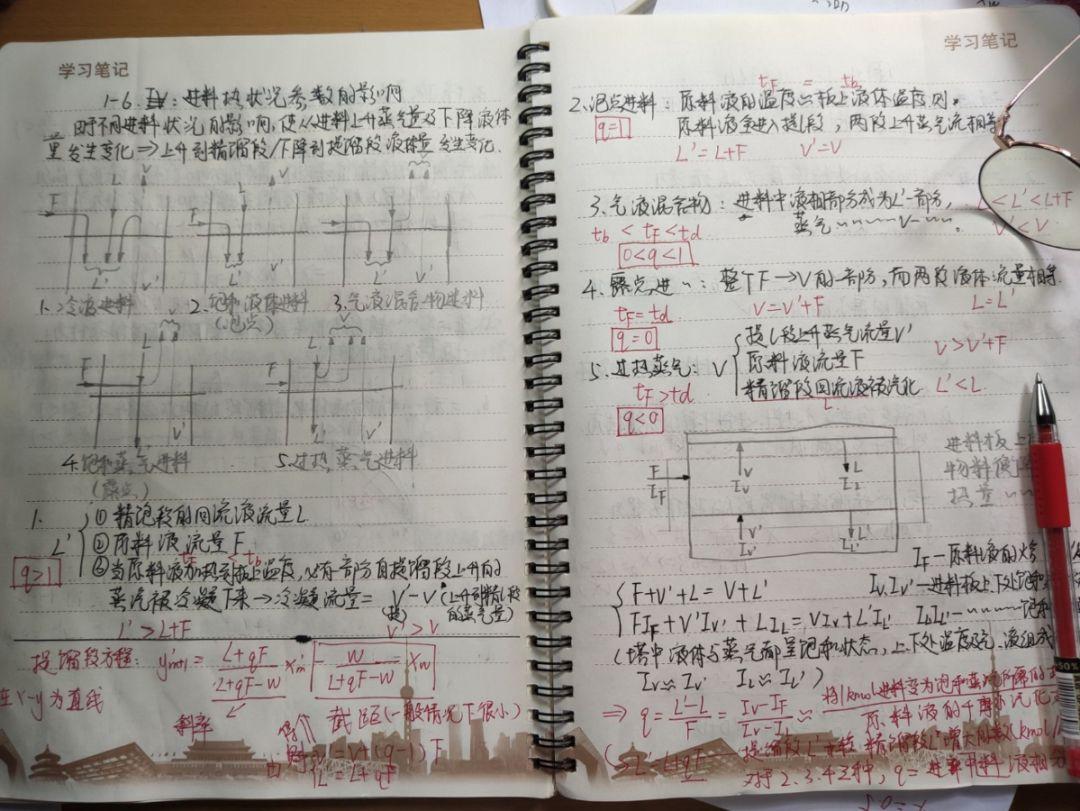 学习笔记
1-6. IV：进料热状况参数的影响
由于不同进料状况的影响，使从进料上升蒸气量及下降液体
量发生变化⇒上升到精馏段/下降到提馏段液体量发生变化.
F L V L' V'
F L V L' V'
F L V L' V'
1. 冷液进料 2. 饱和液体进料 3. 气液混合物进料
(泡点)
L V
F L' V'
F L' V'
4. 饱和蒸气进料 5. 过热蒸气进料
(露点)
1. ① 精馏段的回流液流量L
L' ② 原料液流量F
q>1
③ 当原料液加热到板上温度，必有一部分自提馏段上升的
蒸汽被冷凝下来→冷凝流量= V'-V (上升到精馏段的蒸气量)
(提)
L'>L+F V'>V
提馏段方程: y'm+1 = (L+qF)/(L+qF-W) x'm - W/(L+qF-W) xw
在x-y为直线
斜率 截距(一般情况下很小)
V=V'-(q-1)F
L'=L+qF
学习笔记
tF = tb
2. 泡点进料：原料液的温度≈板上液体温度，则，
q=1
原料液全进入提馏段，两段上升蒸气流相等
L'=L+F V'=V
3. 气液混合物：进料中液相部分成为L'一部分， L<L'<L+F
蒸气〃〃〃V〃〃. V'<V
tb<tF<td
0<q<1
4. 露点进〃：整个F→V的一部分，而两段液体流量相等.
tF=td V=V'+F L=L'
q=0
5. 过热蒸气：V
提馏段上升蒸气流量V'
原料液流量F
精馏段回流液被汽化
V>V'+F
tF>td L'<L
q<0
F IF V IV L IL
V' IV' L' IL'
进料板上
物料衡
热量〃〃
IF—原料液的焓
IV,IV'—进料板上下处饱和
IL,IL'—〃〃〃
F+V'+L=V+L'
FIF+V'IV'+LIL=VIV+L'IL'
(塔中液体与蒸气都呈饱和状态，上、下处温度及气、液组成
IV≈IV' IL≈IL')
⇒ q = (L'-L)/F = (IV-IF)/(IV-IL) ≈ 将1kmol进料变为饱和蒸气所需的
原料液的千摩尔汽化
L'=L+qF 提馏段L'
精馏段L增大的 (kmol/
对2.3.4三种，q=进料中 液相分